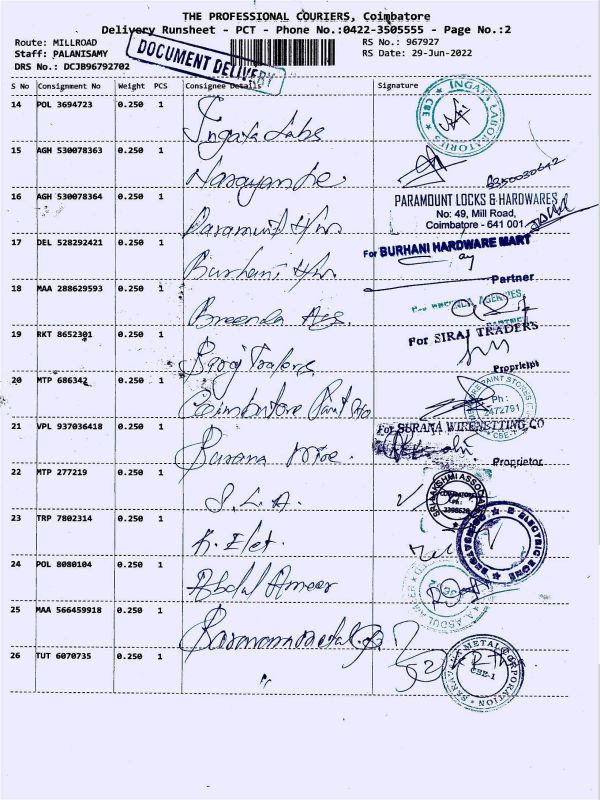 THE PROFESSIONAL COURIERS, Coimbatore
Delivery Runsheet - PCT - Phone No.:0422-3505555 - Page No.:2
Route: MILLROAD
RS No.: 967927
Staff: PALANISAMY
RS Date: 29-Jun-2022
DRS No.: DCJB96792702
DOCUMENT DELIVERY
S No Consignment No Weight PCS Consignee Details Signature
14 POL 3694723 0.250 1 Ingata Labs
INGATA LABORATORIES CBE
15 AGH 530078363 0.250 1
16 AGH 530078364 0.250 1 Paramunt H/w.
PARAMOUNT LOCKS & HARDWARES
No: 49, Mill Road,
Coimbatore - 641 001
17 DEL 528292421 0.250 1 Burhani H/w.
For BURHANI HARDWARE MART
Partner
18 MAA 288629593 0.250 1 Breenda Ags.
19 RKT 8652301 0.250 1 Traders
For SIRAJ TRADERS
Propriet
20 MTP 686342 0.250 1 Coimbatore Paint
PAINT STORES
Ph:
2472791
CBE-1
21 VPL 937036418 0.250 1 Surana
For SURANA WIRENETTING CO
Proprietor
22 MTP 277219 0.250 1 S.L.A.
SRI LAKSHMI ASSOCIA
23 TRP 7802314 0.250 1 K. Elet.
ELECTRIC
24 POL 8080104 0.250 1 Abdul Ameer
A. ABDUL AMEER
25 MAA 566459918 0.250 1
26 TUT 6070735 0.250 1
METAL CORPORATION
CBE-1